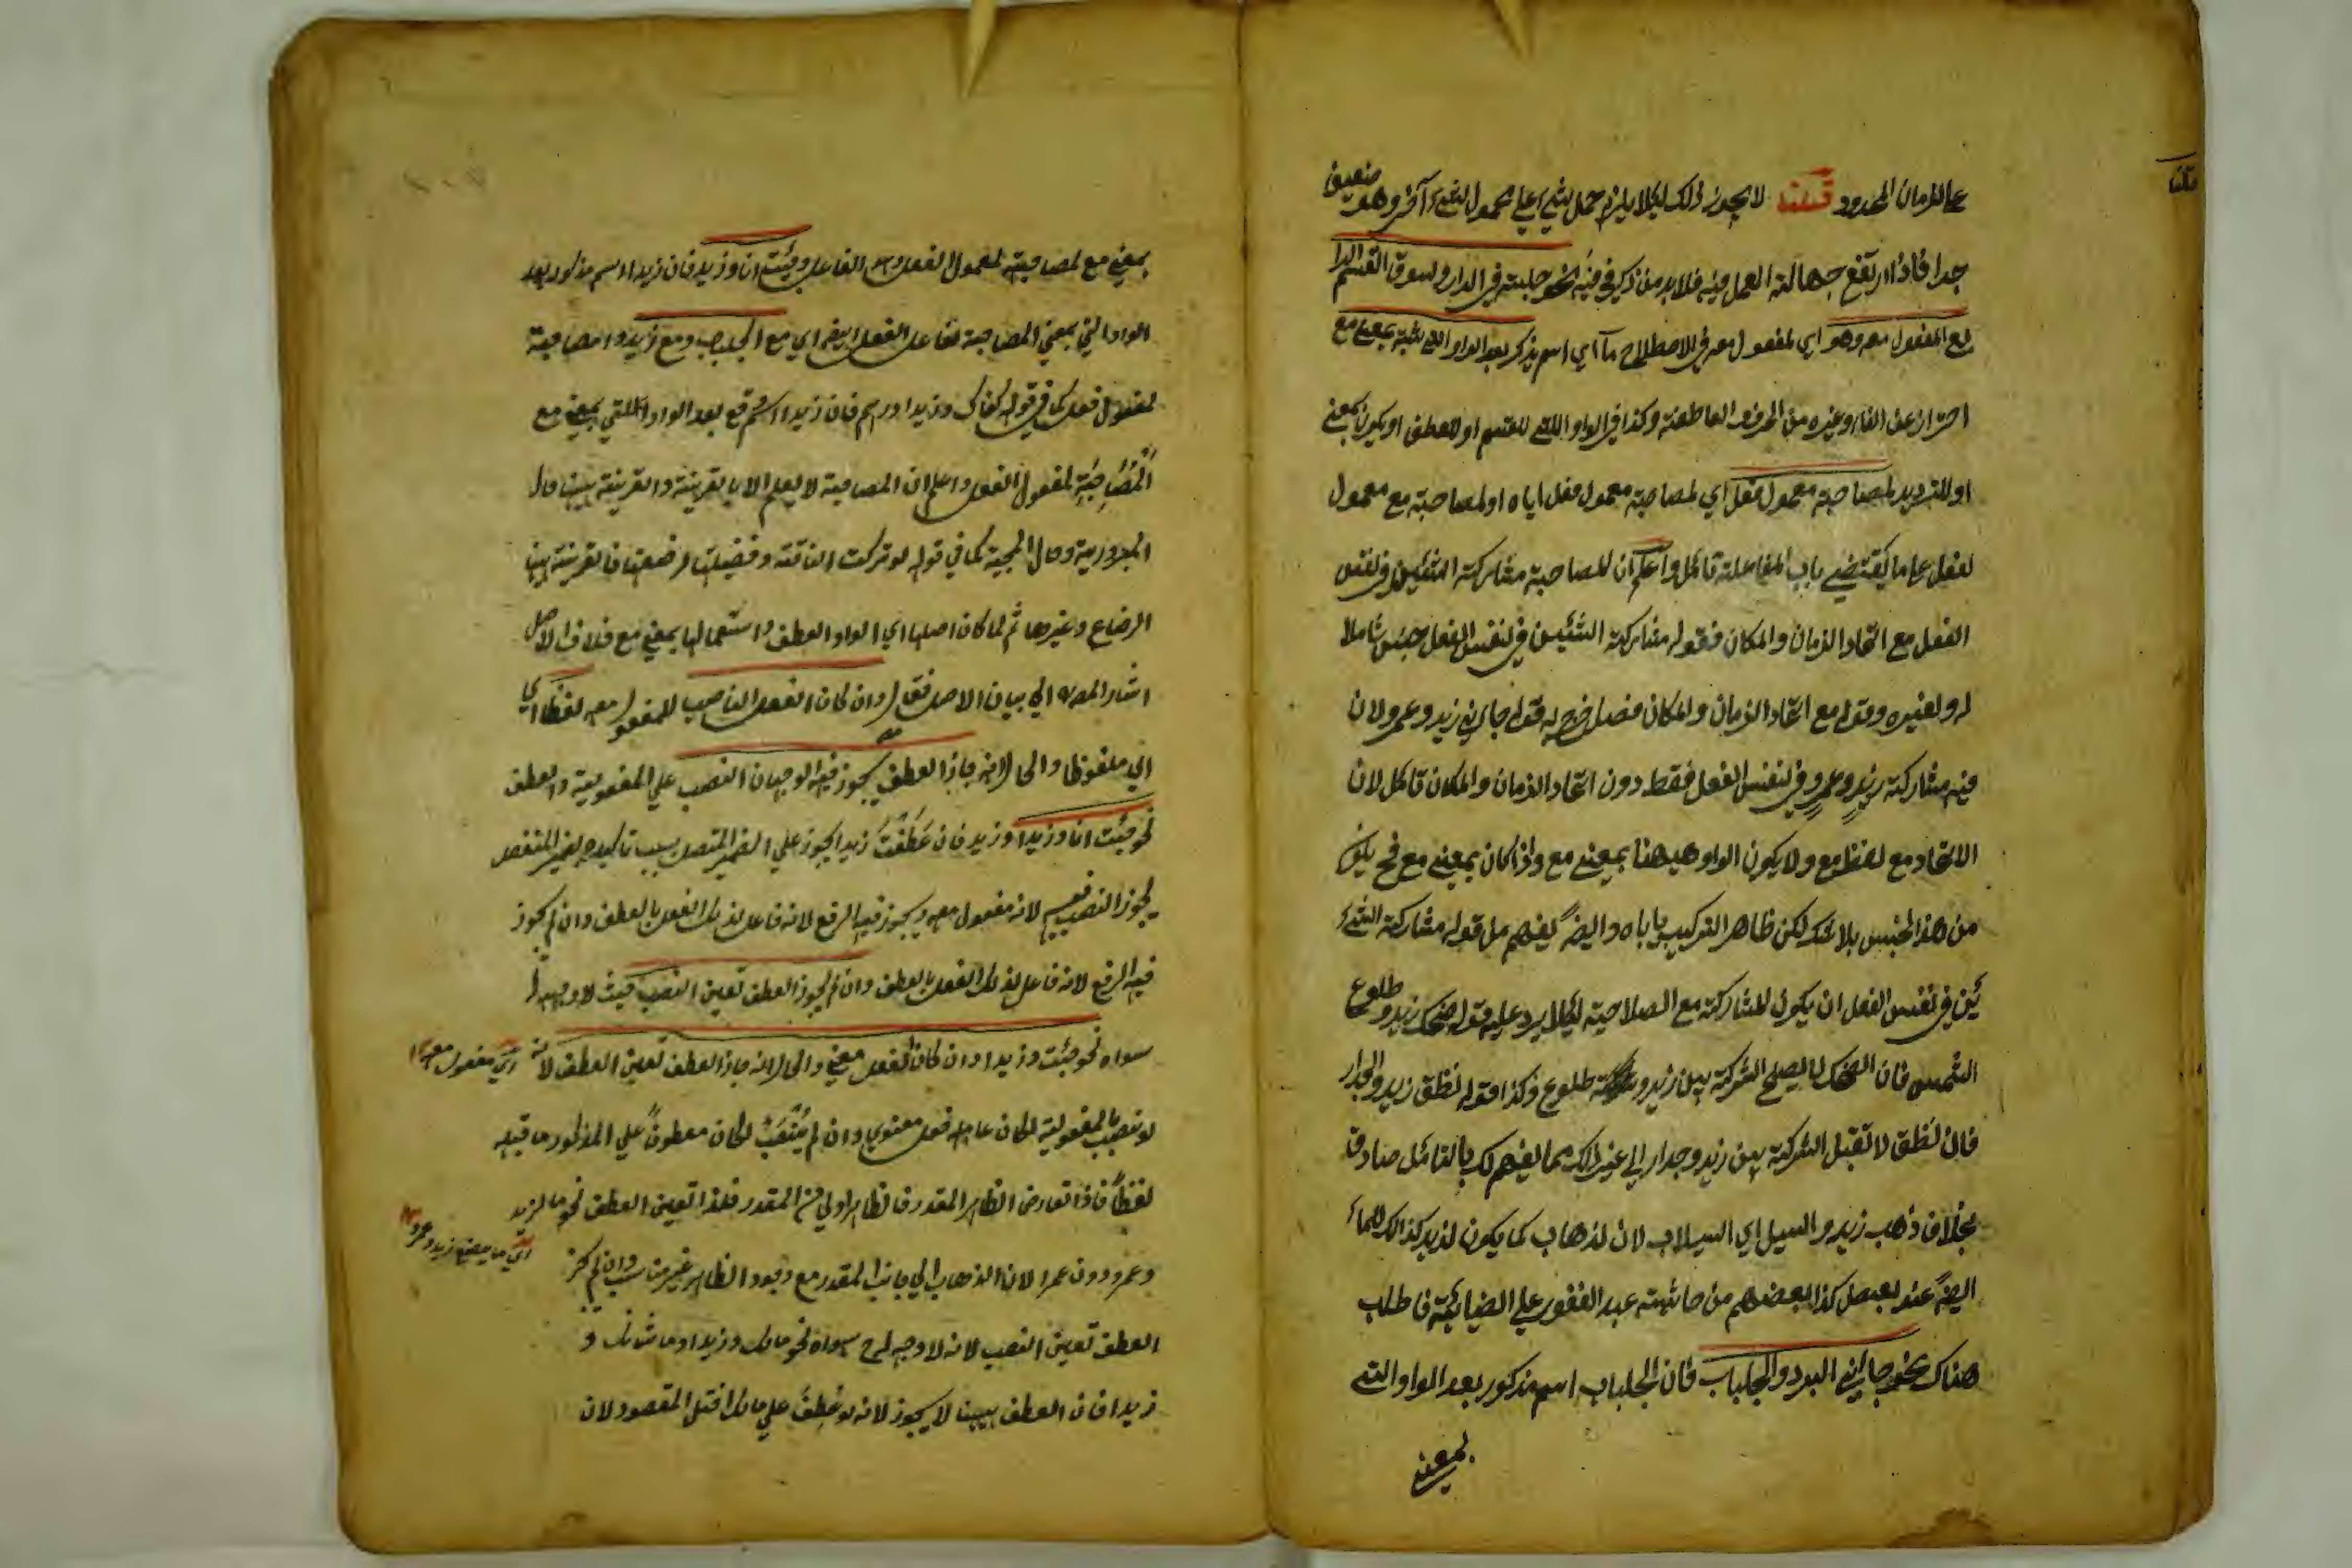 على الزمان المحدود قلنا لا يجوز ذلك لئلا يلزم حمل شيء على محمول الشيء آخر وهو ضعيف
جدا فاذا ارتفع جهالة العمل فيه فلا بد من ذكر في فيه نحو جلبته في الدار ولسوق القسم الرا
بع المفعول معه وهو اي لمفعول معه في الاصطلاح ما اي اسم يذكر بعد الواو اللتي بمعنى مع
احتراز عن الفاء وغيره من الحروف العاطفة وكذا في الواو اللتي للقسم او للعطف او يكون بمعنى
او للترديد لمصاحبة معمول فعل اي لمصاحبة معمول فعل اياه او لمصاحبة مع معمول
لفعل على ما يقتضي باب المفاعلة تأمل واعلم ان للمصاحبة مشاركة الشيئين في نفس
الفعل مع اتحاد الزمان والمكان فقوله مشاركة الشيئين في نفس الفعل جنس شاملا
له ولغيره وقوله مع اتحاد الزمان والمكان فصل خرج به قوله جاءني زيد وعمرو لان
فيه مشاركة زيد وعمرو في نفس الفعل فقط دون اتحاد الزمان والمكان تأمل لان
الاتحاد مع لفظ مع ولا يكون الواو هيهنا بمعنى مع واذا كان بمعنى مع فح يكون
من هذا الجنس بلا شك لكن ظاهر التركيب ياباه وايضا يفهم من قوله مشاركة الشيء
ئين في نفس الفعل ان يكون للمشاركة مع الصلاحية لئلا يرد عليه قوله ضحك زيد وطلوع
الشمس فان الضحك لا يصلح الشركة بين زيد و طلوع وكذا قوله نطق زيد والجدار
فان نطق لا تقبل الشركة بين زيد وجدار الى غير ذلك مما يفهم لك بالتأمل صادق
بخلاف ذهب زيد والسيل اي السيلاب لان لذهاب كما يكون لزيد كذالك للماء
ايضا عند بعض كذا بعضهم من حاشية عبد الغفور على الضيائية فاطلب
هناك نحو جاءني البرد والجلباب فان الجلباب اسم مذكور بعد الواو التي
بمعنى
بمعنى مع لمصاحبته لمعمول الفعل وهو الفاعل وجئت انا وزيد فان زيدا اسم مذكور بعد
الواو التي بمعنى المصاحبة لفاعل الفعل ايضا اي مع الجلباب ومع زيد واما مصاحبة
لمفعول فعل كما في قوله كفاك وزيدا درهم فان زيدا اسم وقع بعد الواو اللتي بمعنى مع
المصاحبة لمفعول الفعل واعلم ان المصاحبة لا يعلم الا بالقرينة والقرينة بينهما حال
البرودية وحال المجية كما في قوله لو تركت الناقة وفصيلتها لرضعتها فالقرينة بينهما
الرضاع وغيرها ثم لما كان اصلها اي الواو العطف واستعمالها بمعنى مع خلاف الاصل
اشار المص الى بيان الاصل فقال وان كان الفعل الناصب للمفعول معه لفظا اي
اي ملفوظا والحال انه جاز العطف يجوز فيه الوجهان النصب على المفعولية والعطف
نحو جئت انا وزيدا وزيد فان عطفت زيدا يجوز على الضمير المتصل بسبب تاكيده بضمير المنفصل
يجوز النصب فيه لانه مفعول معه ويجوز فيه الرفع لانه فاعل لذلك الفعل بالعطف وان لم يجوز
فيه الرفع لانه فاعل لذلك الفعل بالعطف وان لم يجوز العطف تعين النصب حيث لا وجه له
سواه نحو جئت وزيدا وان كان الفعل معنى والحال انه جاز العطف تعين العطف لانه اي مفعول معه
لو نصب بالمفعولية لكان عامله فعل معنوي وان لم ينتصب لكان معطوفا على المذكور ما قبله
لفظا فاذا تعارض الظاهر المقدر فالظاهر اولى من المقدر فلذا تعين العطف نحو ما لزيد
وعمرو دون عمرا لان الذهاب الى جانب المقدر مع وجود الظاهر غير مناسب وان لم يجز
اي ما يصنع زيد وعمرو
العطف تعين النصب لانه لا وجه لرح سواه نحو مالك وزيدا وما شانك و
زيدا فان العطف بينهما لا يجوز لانه لو عطف على مالك اختل المقصود لان